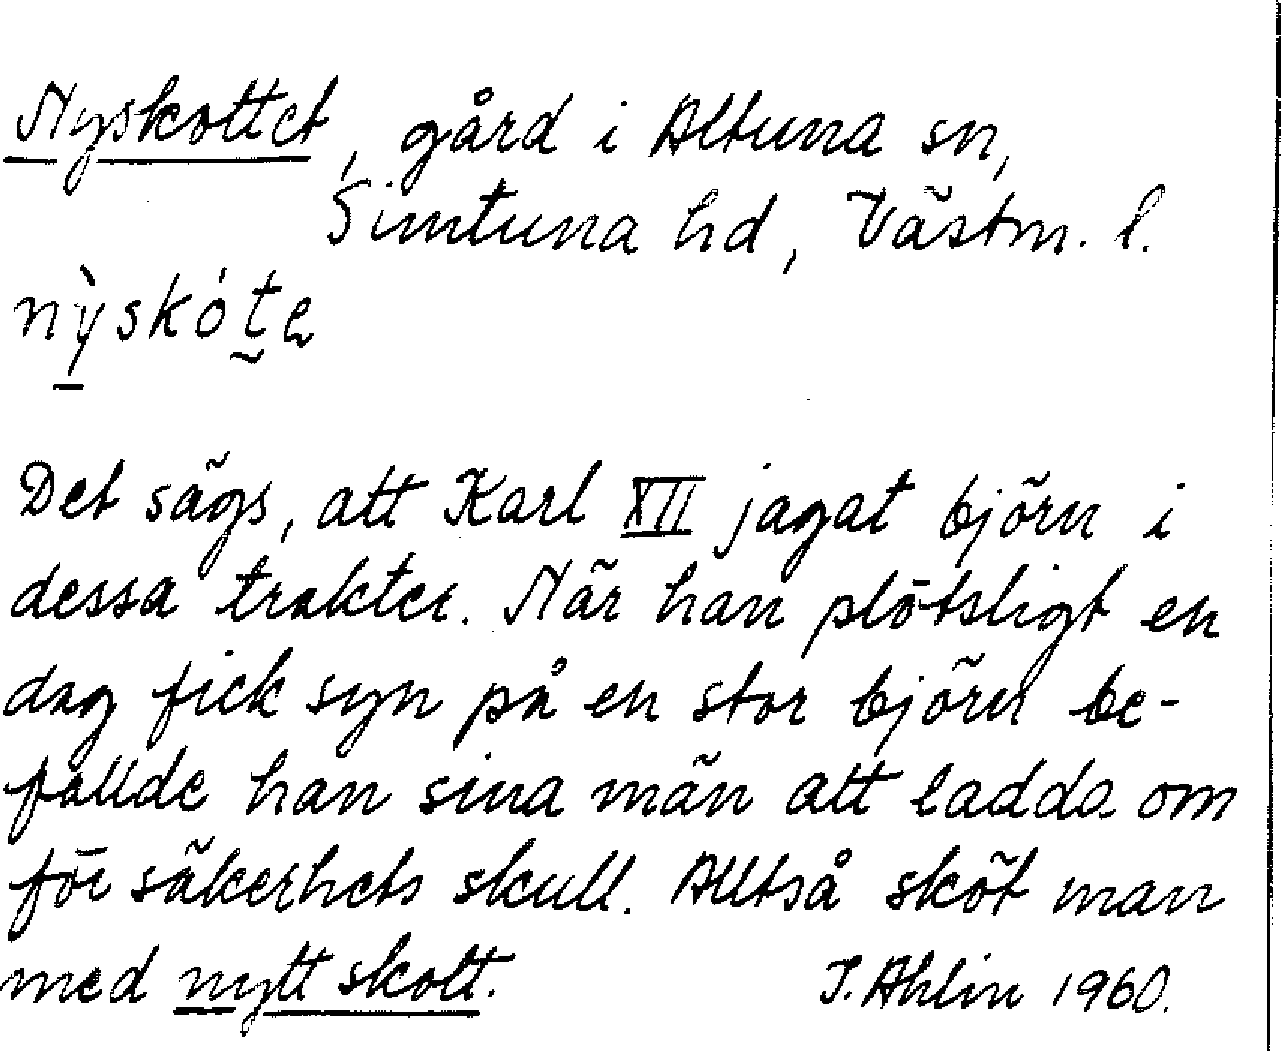 Nyskottet, gård i Altuna sn,
Simtuna hd, Västm. l.
nỳskót̰e
Det sägs, att Karl XII jagat björn i
dessa trakter. När han plötsligt en
dag fick syn på en stor björn be-
fallde han sina män att ladda om
för säkerhets skull. Alltså sköt man
med nytt skott.
I. Ahlin 1960.